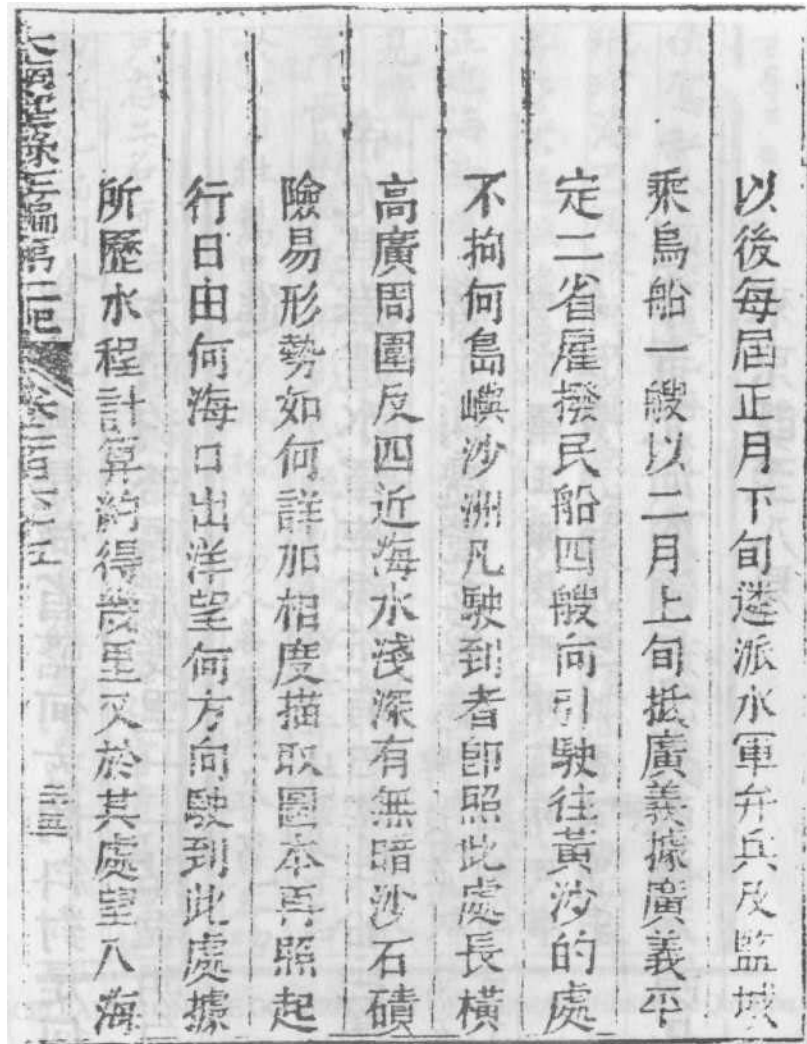 以後每屆正月下旬遴派水軍弁兵及監城
乘烏船一艘以二月上旬抵廣義據廣義平
定二省雇撥民船四艘向引駛往黃沙的處
不拘何島嶼沙洲凡駛到者即照此處長橫
高廣周圍及四近海水淺深有無暗沙石磧
險易形勢如何詳加相度描取圖本再照起
行日由何海口出洋望何方向駛到此處據
所歷水程計算約得幾里又於其處望入海
大南寔錄正編第二紀 卷一百六十五 二十五